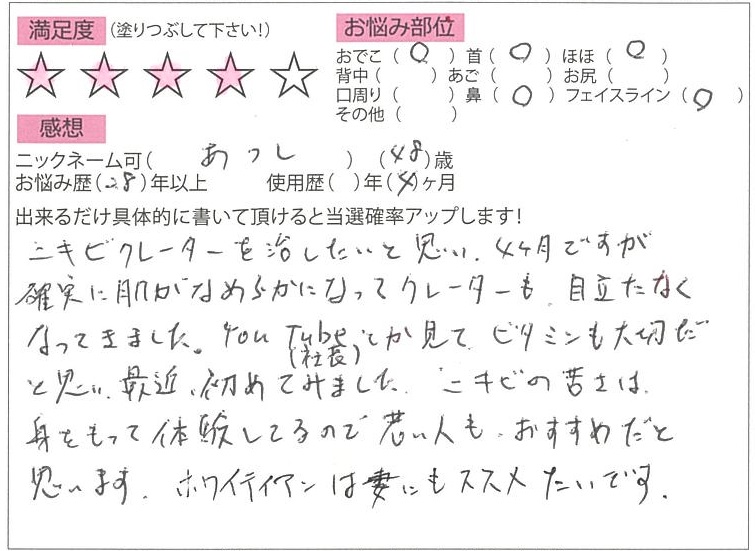 満足度 (塗りつぶして下さい!)
お悩み部位
おでこ(○) 首(○) ほほ(○)
背中( ) あご( ) お尻( )
口周り( ) 鼻(○) フェイスライン(○)
その他( )
感想
ニックネーム可( あつし ) (48)歳
お悩み歴(28)年以上 使用歴( )年(4)ヶ月
出来るだけ具体的に書いて頂けると当選確率アップします!
ニキビクレーターを治したいと思い、4ヶ月ですが
確実に肌がなめらかになってクレーターも、目立たなく
なってきました。YouTubeとか見て、ビタミンも大切だ
(社長)
と思い、最近、初めてみました。ニキビの苦さは、
身をもって体験してるので若い人も、おすすめだと
思います。ホワイティアンは妻にもススメたいです。